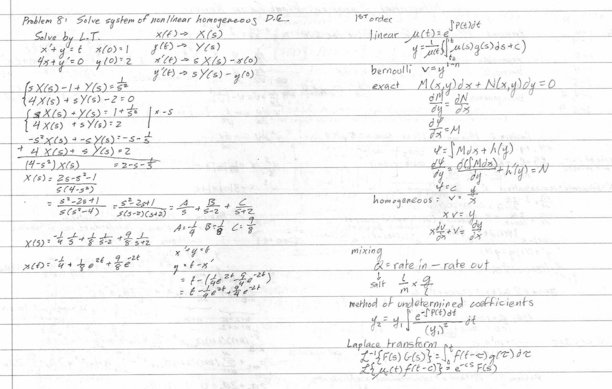 Problem 8: Solve system of nonlinear homogeneous D.E.
Solve by L.T.
x'+y'=t x(0)=1
4x+y'=0 y(0)=2
x(t) → X(s)
y(t) → Y(s)
x'(t) → sX(s)-x(0)
y'(t) → sY(s)-y(0)
{sX(s)-1+Y(s)=1/s²
{4X(s)+sY(s)-2=0
{sX(s)+Y(s)=1+1/s² |x-s
{4X(s)+sY(s)=2
-s²X(s)+-sY(s)=-s-1/s
+ 4X(s)+sY(s)=2
(4-s²)X(s) =2-s-1/s
X(s)= 2s-s²-1 / s(4-s²)
= s²-2s+1 / s(s²-4) = s²-2s+1 / s(s-2)(s+2) = A/s + B/s-2 + C/s+2
A=-1/4 B=1/8 C=9/8
X(s)=-1/4 1/s + 1/8 1/s-2 + 9/8 1/s+2
x(t)=-1/4+1/8 e^2t+9/8 e^-2t
x'+y=t
y=t-x'
=t-(1/4e^2t-9/4e^-2t)
=t-1/4e^2t+9/4e^-2t
1st order
linear μ(t)=e^∫P(t)dt
y=1/μ(t)[∫μ(s)g(s)ds+c]
bernoulli v=y^1-n
exact M(x,y)dx+N(x,y)dy=0
dM/dy=dN/dx
dψ/dx=M
ψ=∫Mdx+h(y)
dψ/dy=d(∫Mdx)/dy+h'(y)=N
ψ=c
homogeneous: v=y/x
xv=y
x dv/dx+v=dy/dx
mixing
Q'=rate in - rate out
salt L/m x g/L
method of undetermined coefficients
y₂=y₁∫e^-∫P(t)dt/(y₁)² dt
Laplace transform
L⁻¹{F(s)G(s)}=∫₀ᵗf(t-τ)g(τ)dτ
L{μc(t)f(t-c)}=e^-cs F(s)